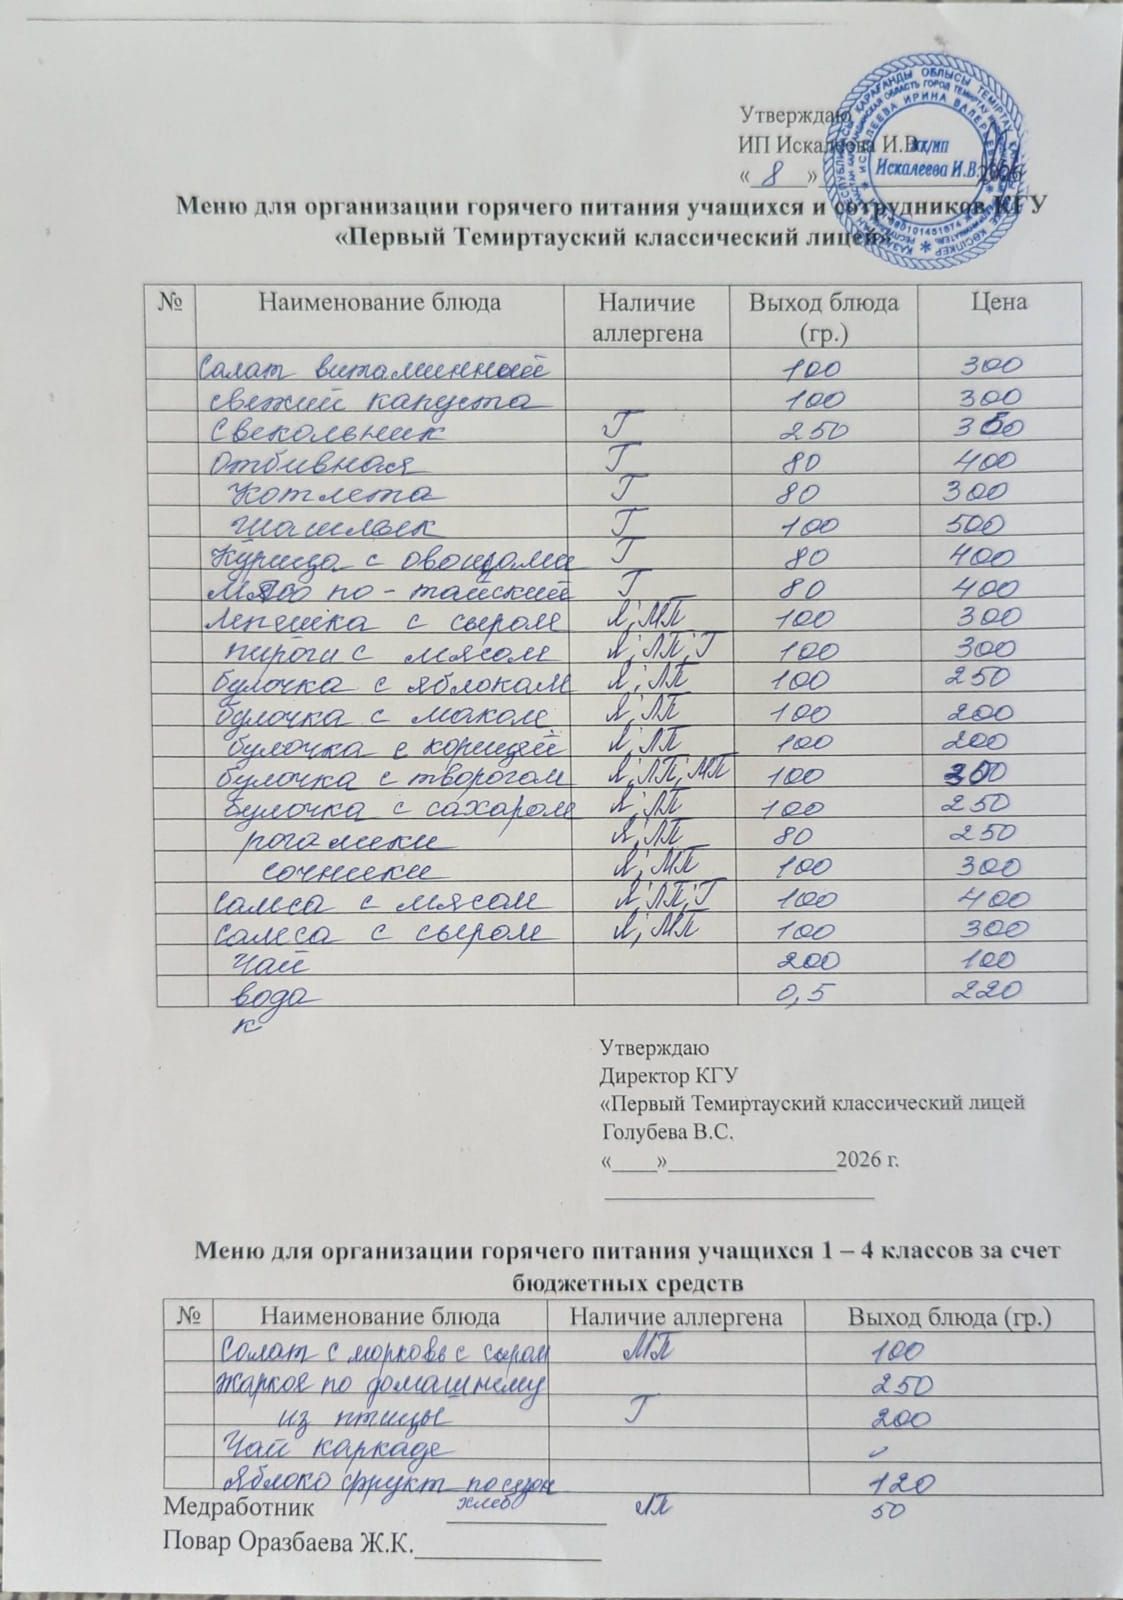 Утверждаю
ИП Искалеева И.В.
« 8 » 2026
ЖК/ИП
Искалеева И.В.
Меню для организации горячего питания учащихся и сотрудников КГУ
«Первый Темиртауский классический лицей»
№ Наименование блюда Наличие аллергена Выход блюда (гр.) Цена
Салат витаминный 100 300
свежий капуста 100 300
Свекольник Г 250 350
Отбивная Г 80 400
Котлета Г 80 300
Шашлык Г 100 500
Курица с овощами Г 80 400
Мясо по-тайский Г 80 400
Лепешка с сыром Я; МП 100 300
пироги с мясом Я; ЛП; Г 100 300
булочка с яблоком Я; ЛП 100 250
булочка с маком Я; ЛП 100 200
булочка с корицей Я; ЛП 100 200
булочка с творогом Я; ЛП; МП 100
булочка с сахаром Я; ЛП 100 250
рогалики Я; ЛП 80 250
сочники Я; МП 100 300
самса с мясом Я; ЛП; Г 100 400
самса с сыром Я; МП 100 300
Чай 200 100
вода 0,5 220
к
Утверждаю
Директор КГУ
«Первый Темиртауский классический лицей
Голубева В.С.
«____»_______________2026 г.
Меню для организации горячего питания учащихся 1 – 4 классов за счет
бюджетных средств
№ Наименование блюда Наличие аллергена Выход блюда (гр.)
Солат с морковь с сыром МП 100
Жаркое по домашнему 250
из птицы Г 200
Чай каркаде
Яблоко фрукт по сезон 120
Медработник хлеб ЛП 50
Повар Оразбаева Ж.К.______________